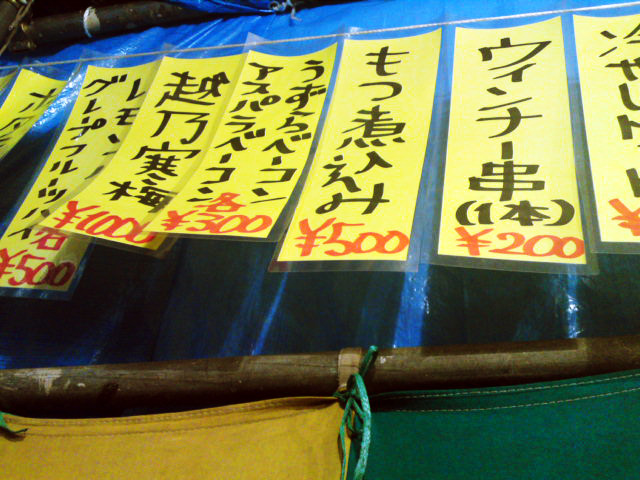 冷やしト
¥
ウィンナー串
(1本)
¥200
もつ煮込み
¥500
うずらベーコン
アスパラベーコン
各
¥300
越乃寒梅
¥1000
レモン
グレープフルーツハイ
各
¥500